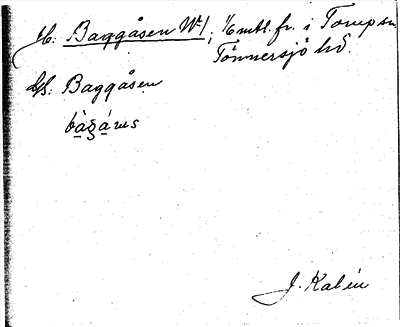 Jb: Baggåsen No 1, 1/6 mtl. fr. i Torup sn.
Tönnersjö hd.
Us: Baggåsen
bàgås
J. Kalén